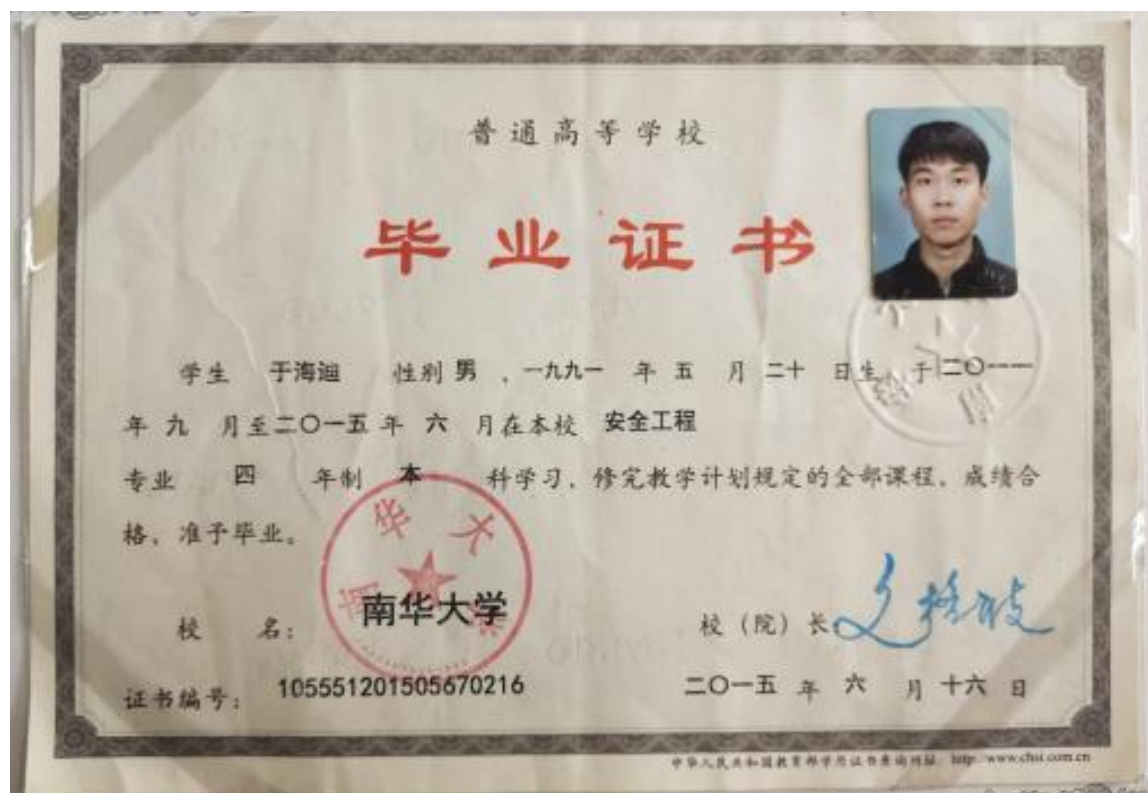 普通高等学校
毕业证书
学生 于海迪 性别 男 ,一九九一 年 五 月 二十 日生,于二〇一一
年 九 月至二〇一五 年 六 月在本校 安全工程
专业 四 年制 本 科学习,修完教学计划规定的全部课程,成绩合
格,准予毕业。
南华大学
校 名: 南华大学
校(院)长:
证书编号: 105551201505670216
二〇一五 年 六 月 十六 日
中华人民共和国教育部学历证书查询网址: http://www.chsi.com.cn